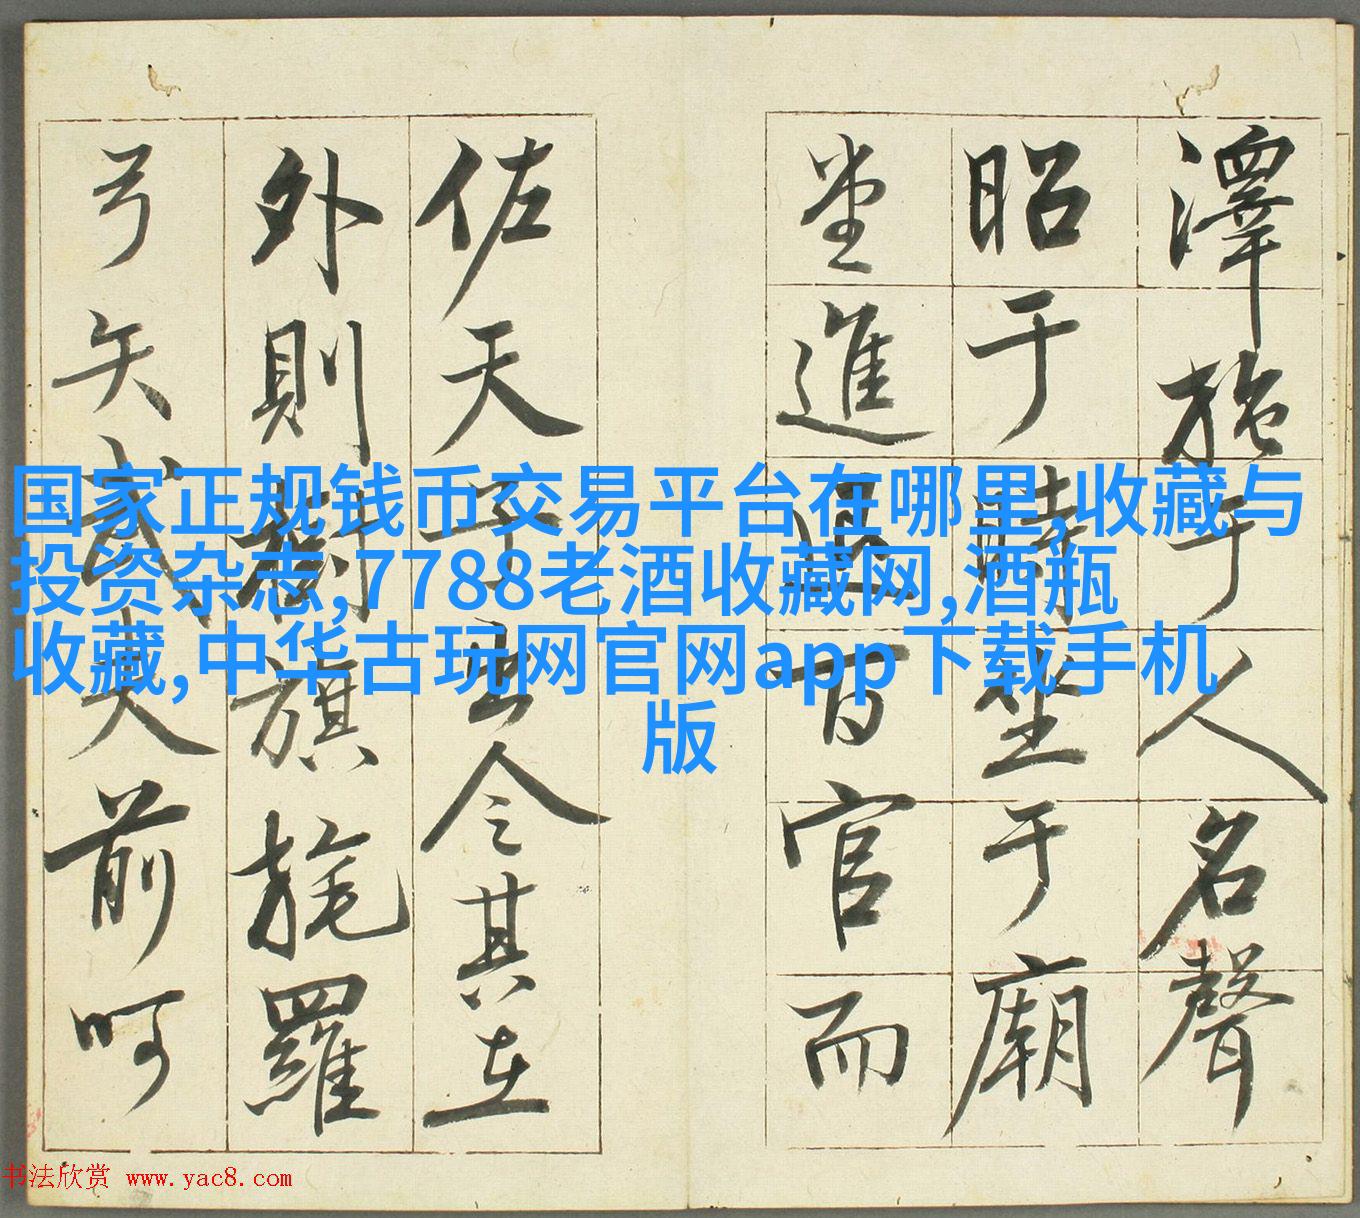 国家正规钱币交易平台在哪里,收藏与
投资杂志,7788老酒收藏网,酒瓶
收藏,中华古玩网官网app下载手机
版
澤施于人名聲
昭于時坐于廟
堂進退百官而
佐天子出令其在
外則樹旗旄羅
弓矢武夫前呵
书法欣赏 www.yac8.com